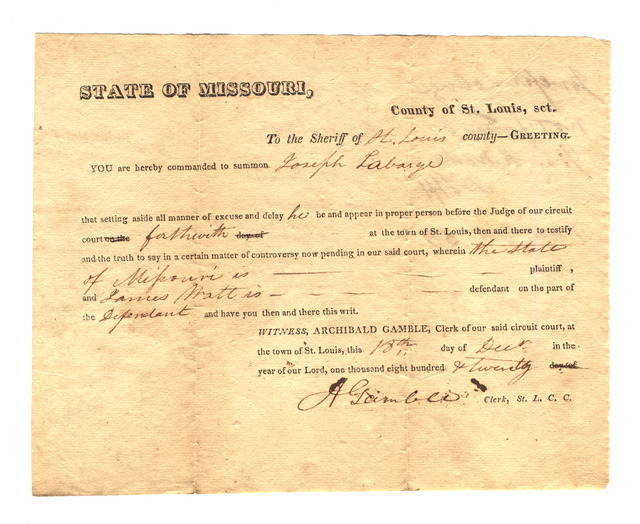 STATE OF MISSOURI,
County of St. Louis, sct.
To the Sheriff of St. Louis county—GREETING.
YOU are hereby commanded to summon Joseph Labarge
that setting aside all manner of excuse and delay he be and appear in proper person before the Judge of our circuit
court on the forthwith day of at the town of St. Louis, then and there to testify
and the truth to say in a certain matter of controversy now pending in our said court, wherein the State
of Missouri is plaintiff,
and James Watt is defendant on the part of
the Defendant and have you then and there this writ.
WITNESS, ARCHIBALD GAMBLE, Clerk of our said circuit court, at
the town of St. Louis, this 18th day of Decr in the
year of our Lord, one thousand eight hundred & twenty day of
A Gamble Clerk, St. L. C. C.